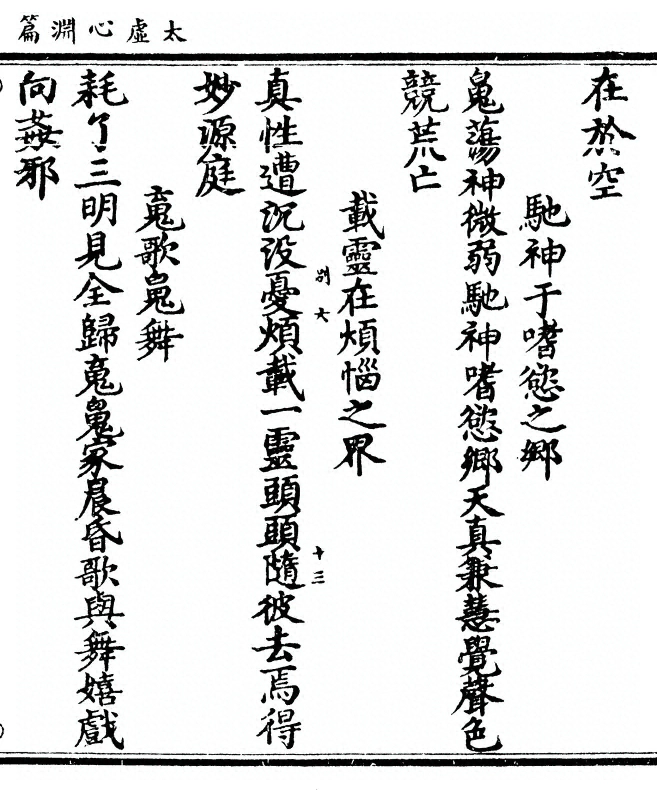 太虛心淵篇
在於空
馳神于嗜慾之鄉
魄蕩神微弱馳神嗜慾鄉天真兼慧覺聲色
競荒亡
載靈在煩惱之界
別六 十三
真性遭沉没憂煩載一靈頭頭隨彼去焉得
妙源庭
䰟歌魄舞
耗了三明見全歸䰟魄家晨昏歌與舞嬉戲
向姦邪